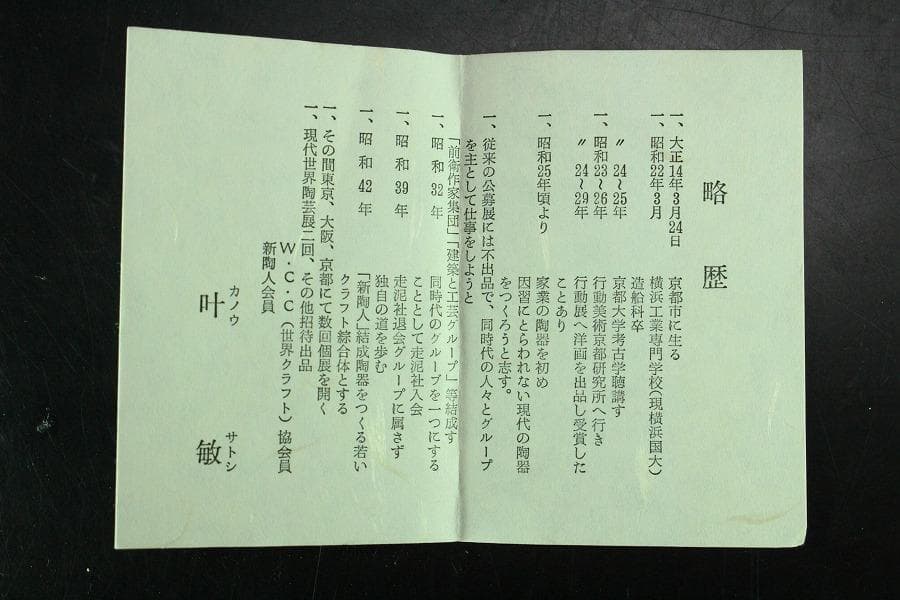 略歴
一、大正14年3月24日 京都市に生る
一、昭和22年3月 横浜工業専門学校(現横浜国大)
造船科卒
〃 24~25年 京都大学考古学聴講す
一、昭和23~26年 行動美術京都研究所へ行き
〃 24~29年 行動展へ洋画を出品し受賞した
ことあり
一、昭和25年頃より 家業の陶器を初め
因習にとらわれない現代の陶器
をつくろうと志す。
一、従来の公募展には不出品で、同時代の人々とグループ
を主として仕事をしようと
「前衛作家集団」「建築と工芸グループ」等結成す
一、昭和32年 同時代のグループを一つにする
こととして走泥社入会
一、昭和39年 走泥社退会グループに属さず
独自の道を歩む
一、昭和42年 「新陶人」結成陶器をつくる若い
クラフト綜合体とする
一、その間東京、大阪、京都にて数回個展を開く
一、現代世界陶芸展二回、その他招待出品
W・C・C(世界クラフト)協会員
新陶人会員
叶 敏
カノウ サトシ